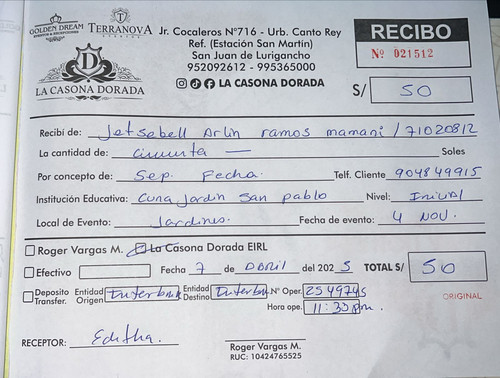 GOLDEN DREAM
EVENTOS & RECEPCIONES
TERRANOVA
EVENTOS
D
LA CASONA DORADA
Jr. Cocaleros N°716 - Urb. Canto Rey
Ref. (Estación San Martín)
San Juan de Lurigancho
952092612 - 995365000
LA CASONA DORADA
RECIBO
Nº 021512
S/ 50
Recibí de: Jetsebell Arlin ramos mamani / 71020812
La cantidad de: cincuenta — Soles
Por concepto de: Sep. Fecha. Telf. Cliente 904849915
Institución Educativa: Cuna Jardin San pablo Nivel: Inicial
Local de Evento: Jardines. Fecha de evento: 4 NOV.
Roger Vargas M. La Casona Dorada EIRL
Efectivo Fecha 7 de abril del 2025 TOTAL S/ 50
Deposito Transfer. Entidad Origen Interbank Entidad Destino Interbn Nº Oper. 2549745
Hora ope. 11:33 pm.
ORIGINAL
RECEPTOR: Editha.
Roger Vargas M.
RUC: 10424765525